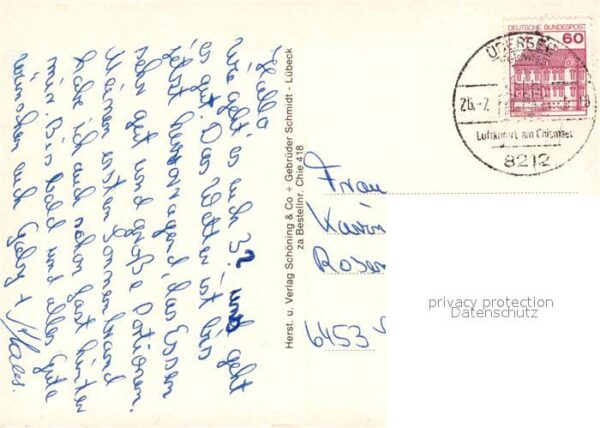 Hallo
wie geht es euch 3? uns geht
es gut. Das Wetter ist bis
jetzt hervorragend, das Essen
sehr gut und große Portionen.
Meinen ersten Sonnenbrand
habe ich auch schon fast hinter
mir. Bis bald und alles Gute
wünschen euch Gaby +
Herst. u. Verlag Schöning & Co + Gebrüder Schmidt - Lübeck
za Bestellnr. Chie 418
DEUTSCHE BUNDESPOST
60
ÜBERSEE
26.-7.
Luftkurort am Chiemsee
8212
Frau
Karin
Rosen
6453
privacy protection
Datenschutz